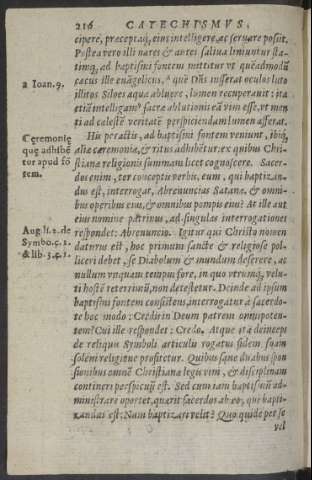 216 CATECHISMVS,
cipere, preceptaq́; eius intelligere, ac seruare possit.
Postea vero illi nares & aures saliua liniuntur sta-
timq́; ad baptismi fontem mittitur vt quēadmodū
2 Ioan. 9.
cæcus ille euāgelicus, ᵃ quē Dn̄s iusserat oculos luto
illitos Siloes aqua abluere, lumen recuperauit: ita
etiā intelligam⁹ sacræ ablutionis eā vim esse, vt men
ti ad cælestē veritatē perspiciendam lumen afferat.
Ceremonię
quę adhibē
tur apud fō
tem.
His peractis, ad baptismi fontem veniunt, ibiq́;
aliæ cæremoniæ, & ritus adhibētur, ex quibus Chri-
stianæ religionis summam licet cognoscere. Sacer-
dos enim, ter conceptis verbis, eum, qui baptizan-
dus est, interrogat, Abrenuncias Satanæ, & omni-
bus operibus eius, & omnibus pompis eius? At ille aut
eius nomine patrinus, ad singulas interrogationes
Aug. li. 2. de
Symbo. c. 1.
& lib. 3. c. 1.
respondet: Abrenuncio. Igitur qui Christo nomen
daturus est, hoc primum sancte & religiose pol-
liceri debet, se Diabolum & mundum deserere, ac
nullum vnquam tempus fore, in quo vtrumq́; velu-
ti hostē teterrimū, non detestetur. Deinde ad ipsum
baptismi fontem consistens, interrogatur à sacerdo-
te hoc modo: Credis in Deum patrem omnipoten-
tem? Cui ille respondet: Credo. Atque ita deinceps
de reliquis Symboli articulis rogatus fidem suam
solēni religione profitetur. Quibus sane duabus spon
sionibus omnē Christianæ legis vim, & disciplinam
contineri perspicuū est. Sed cum iam baptismū ad-
ministrare oportet, quærit sacerdos ab eo, qui bapti-
zandus est: Num baptizari velit? Quo quidē per se
vel